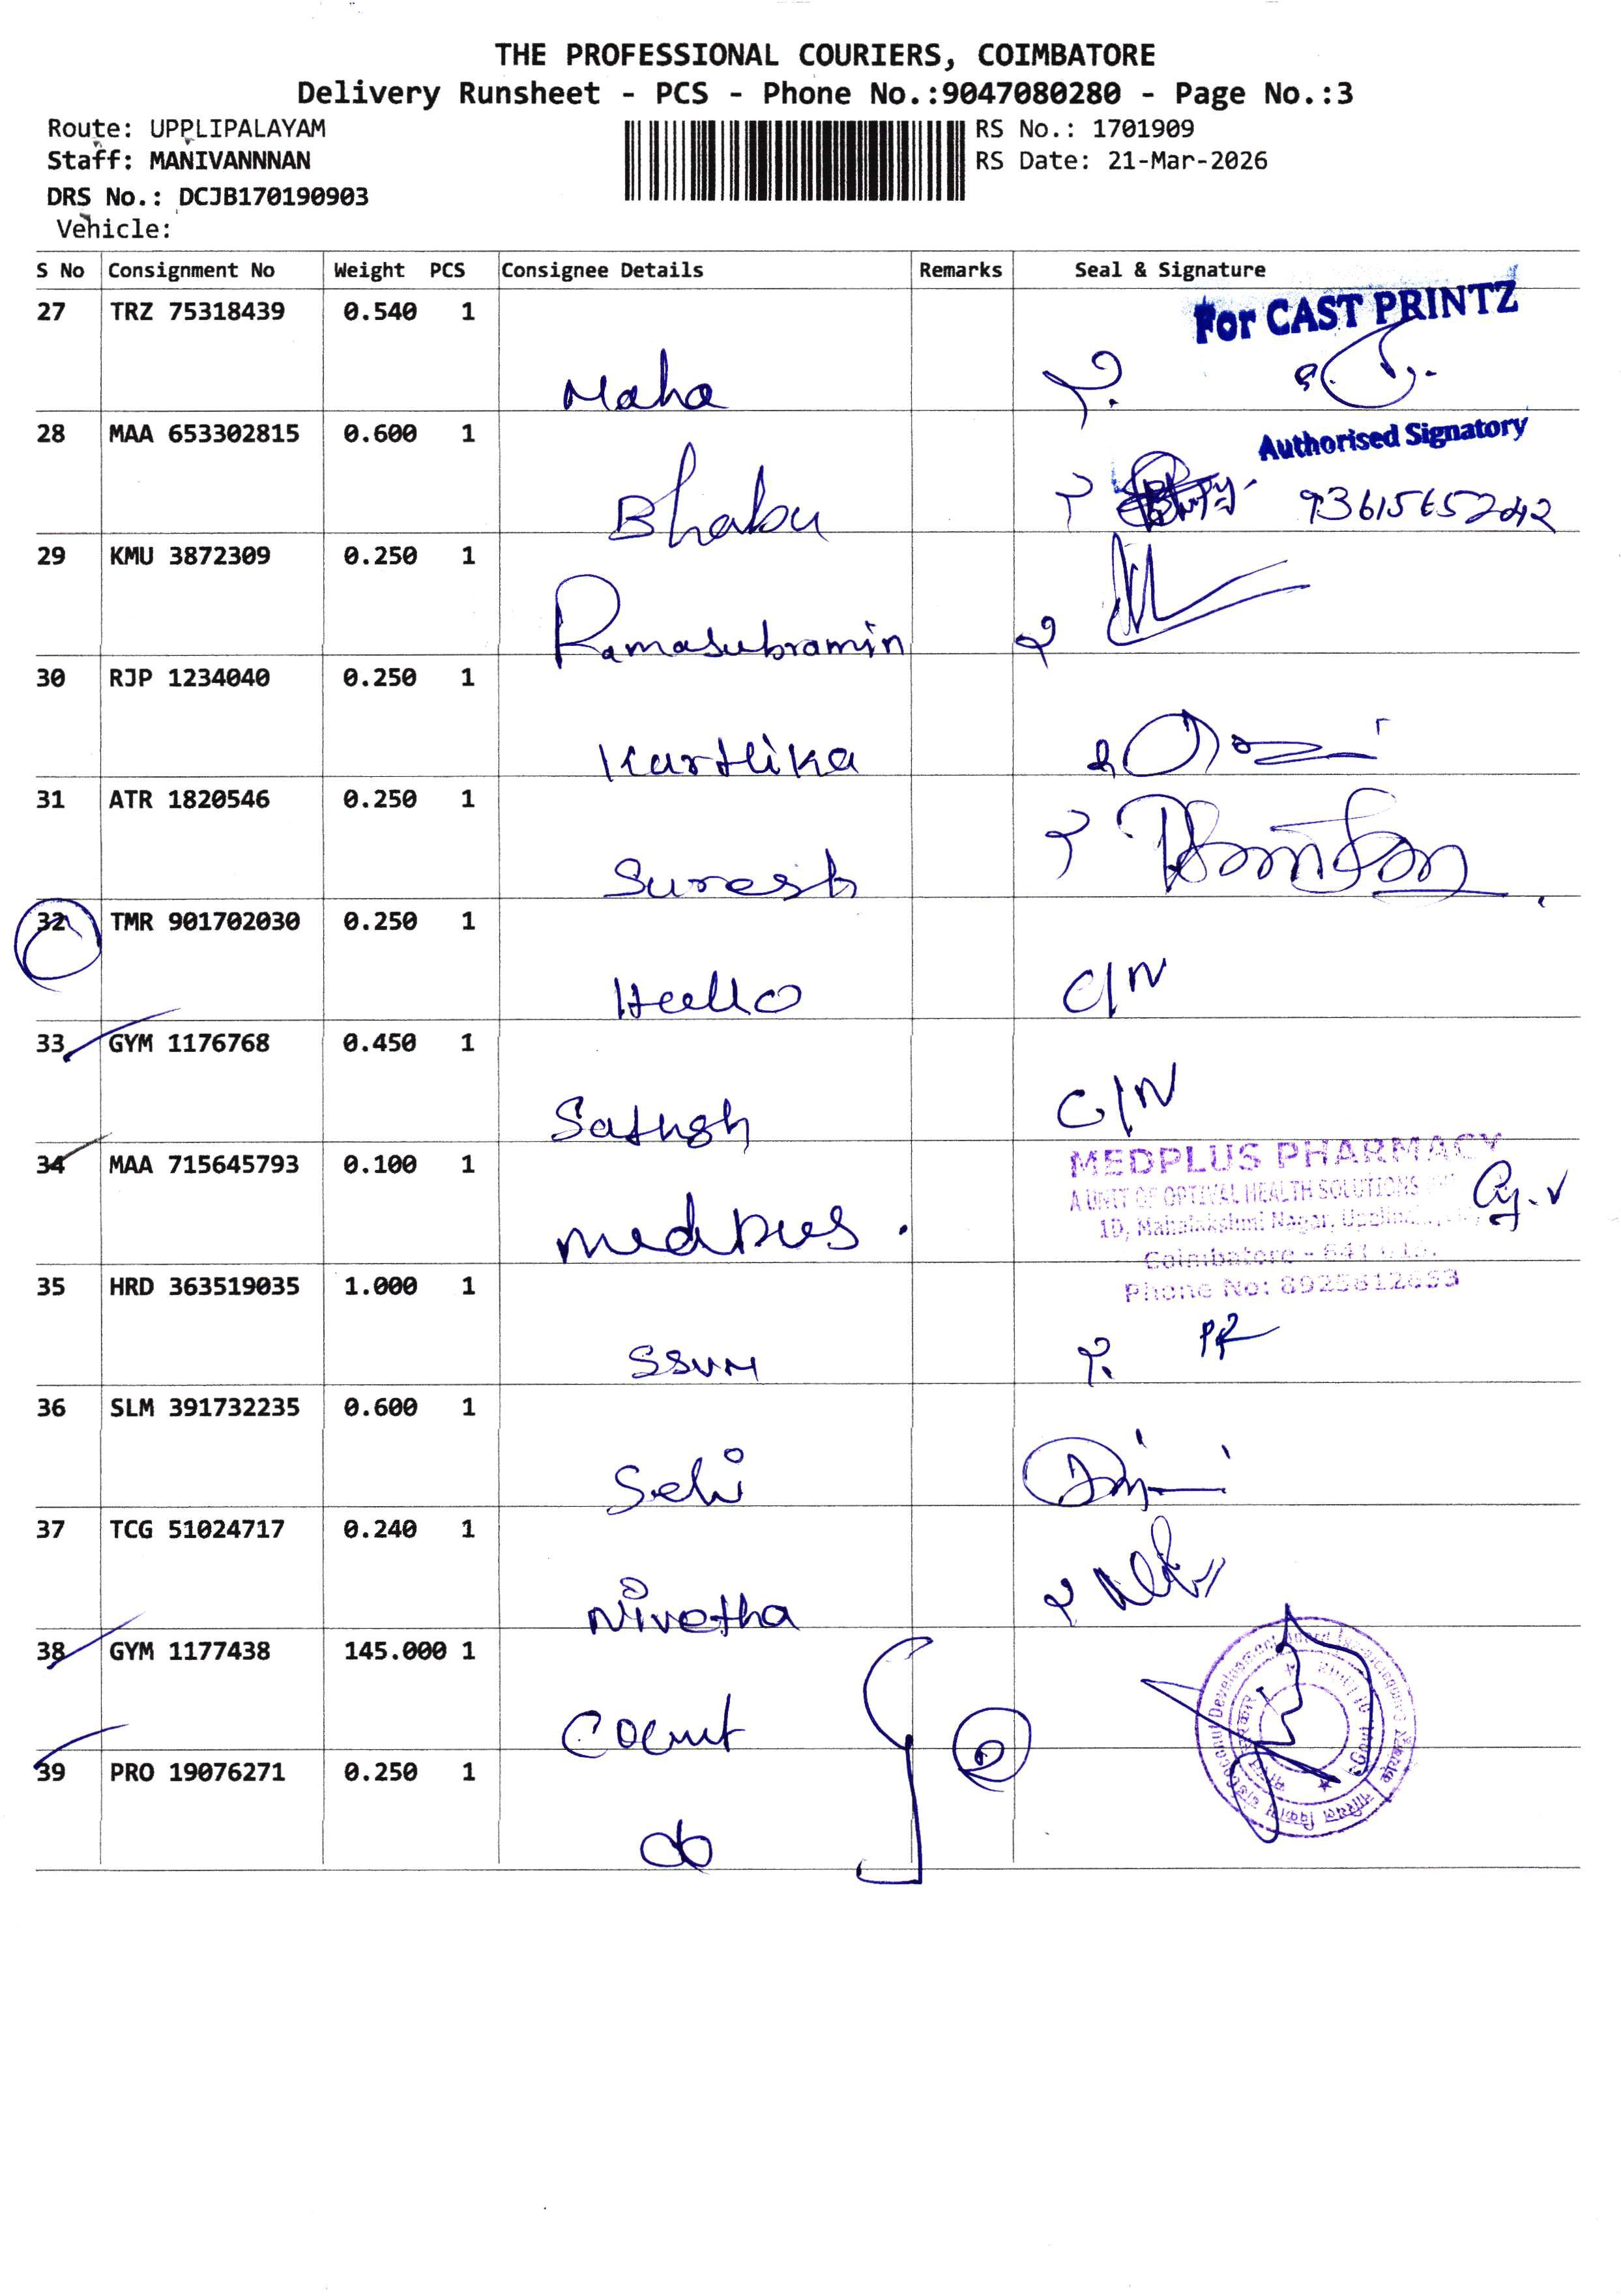 THE PROFESSIONAL COURIERS, COIMBATORE
Delivery Runsheet - PCS - Phone No.:9047080280 - Page No.:3
Route: UPPLIPALAYAM
Staff: MANIVANNNAN
DRS No.: DCJB170190903
Vehicle:
RS No.: 1701909
RS Date: 21-Mar-2026
S No Consignment No Weight PCS Consignee Details Remarks Seal & Signature
27 TRZ 75318439 0.540 1
Maha
For CAST PRINTZ
28 MAA 653302815 0.600 1
Bhabu
Authorised Signatory
29 KMU 3872309 0.250 1
Ramasubramin
30 RJP 1234040 0.250 1
Karthika
31 ATR 1820546 0.250 1
Suresh
32 TMR 901702030 0.250 1
Hello C/N
33 GYM 1176768 0.450 1
Sathish C/N
34 MAA 715645793 0.100 1
medplus.
MEDPLUS PHARMACY
A UNIT OF OPTIVAL HEALTH SOLUTIONS
10, Mahalakshmi Nagar,
Coimbatore - 641
Phone No: 8925612653
35 HRD 363519035 1.000 1
SSVM
36 SLM 391732235 0.600 1
Selvi
37 TCG 51024717 0.240 1
Nivetha
38 GYM 1177438 145.000 1
Coconut Development Board
39 PRO 19076271 0.250 1
do